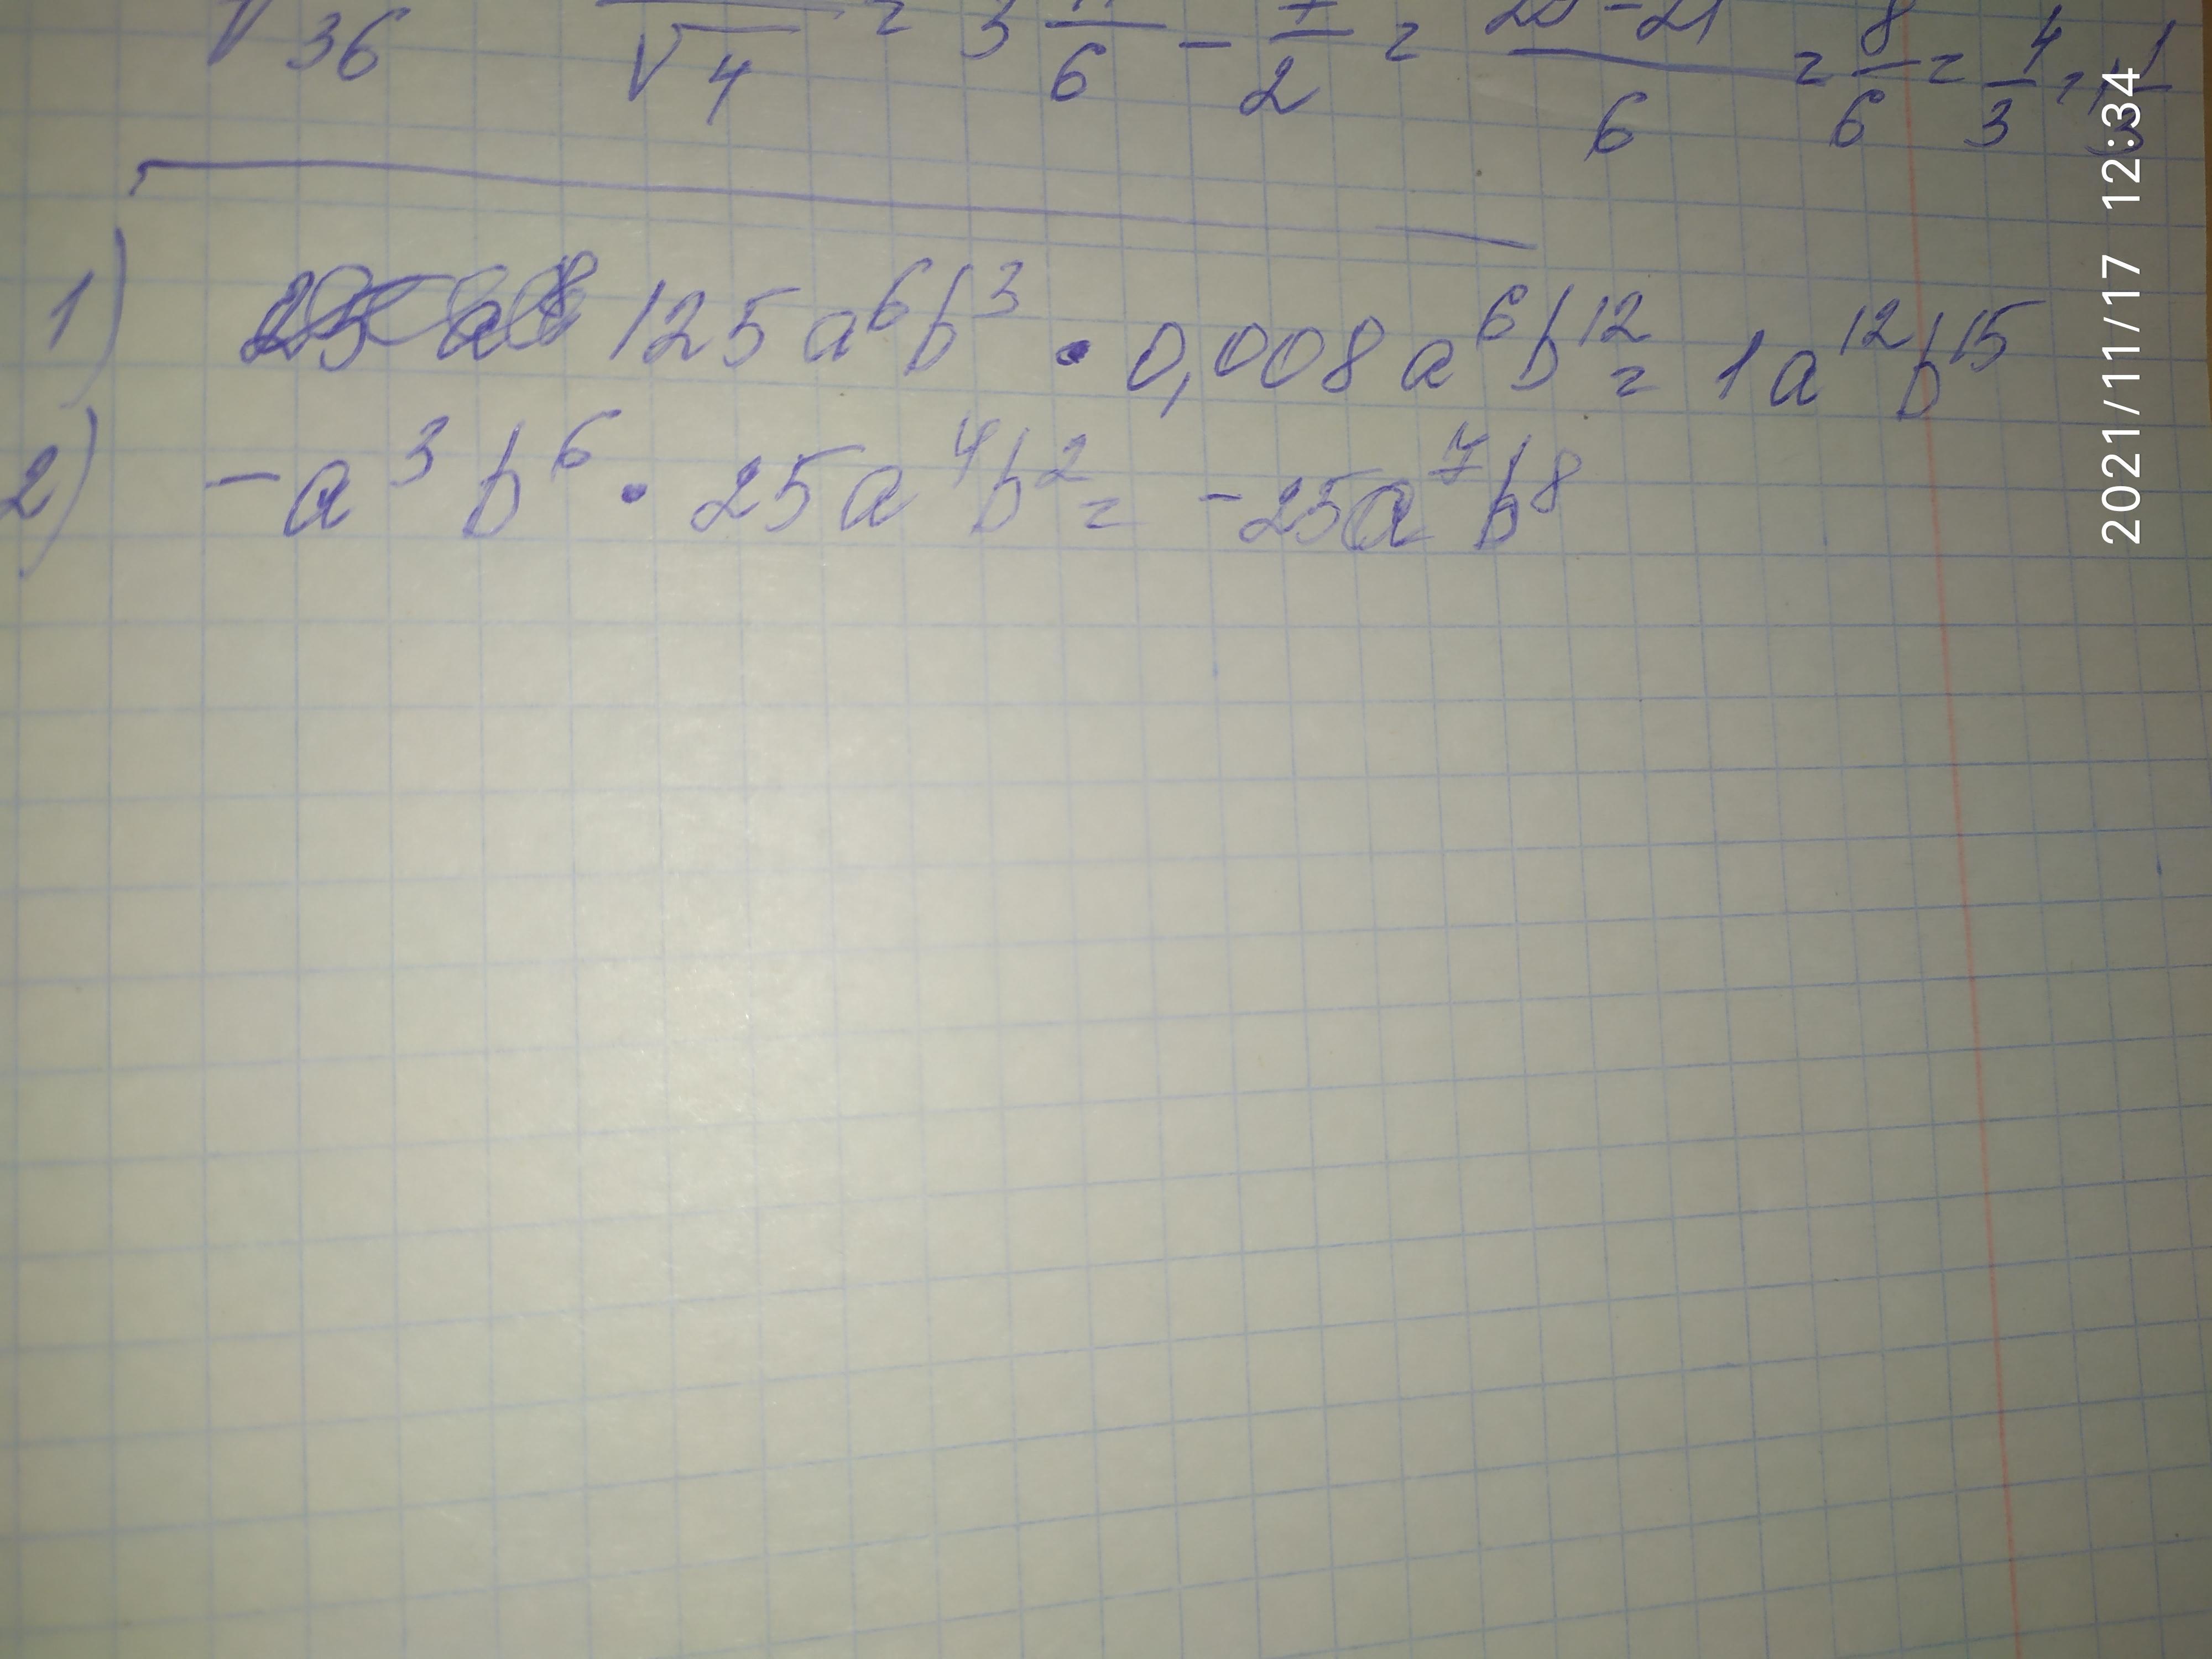 √36 √4 = 3 /6 - 7/2 = -21/6 = 8/6 = 4/3 = 1 1/3
1) 125a⁶b³ · 0,008a⁶b¹² = 1a¹²b¹⁵
2) -a³b⁶ · 25a⁴b² = -25a⁷b⁸
2021/11/17 12:34